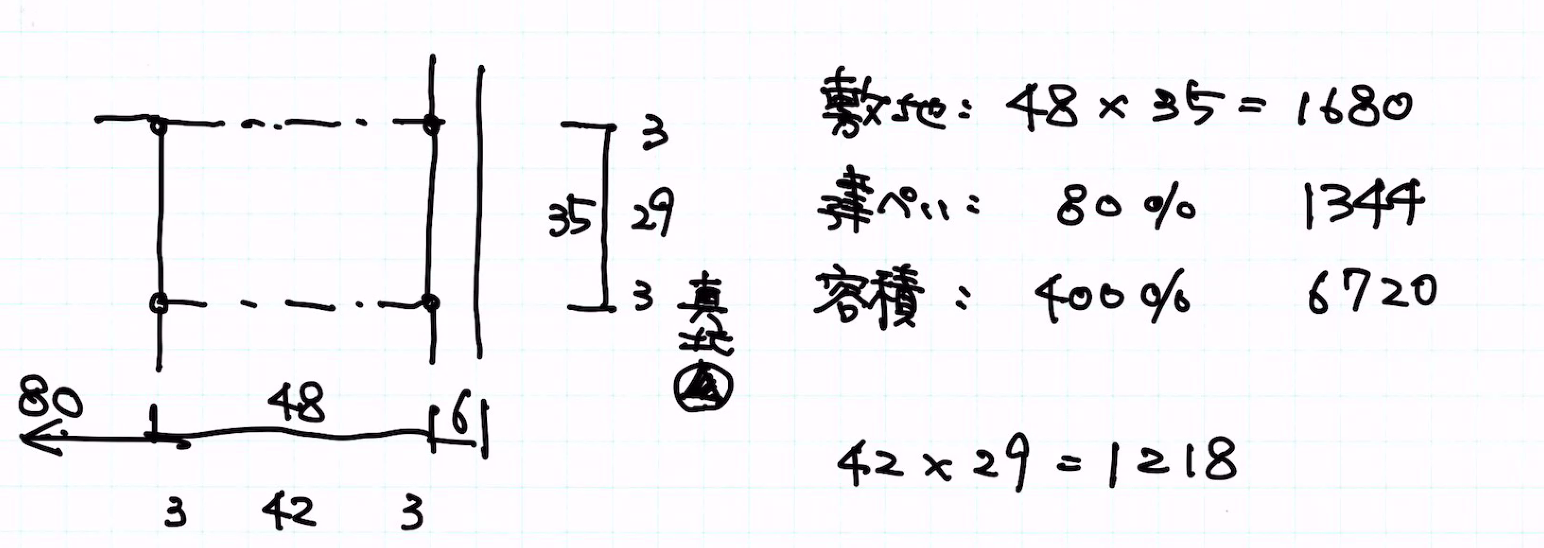 敷地: 48 × 35 = 1680
建ぺい: 80% 1344
容積: 400% 6720
42 × 29 = 1218
3
35 29
3
80 48 6
3 42 3